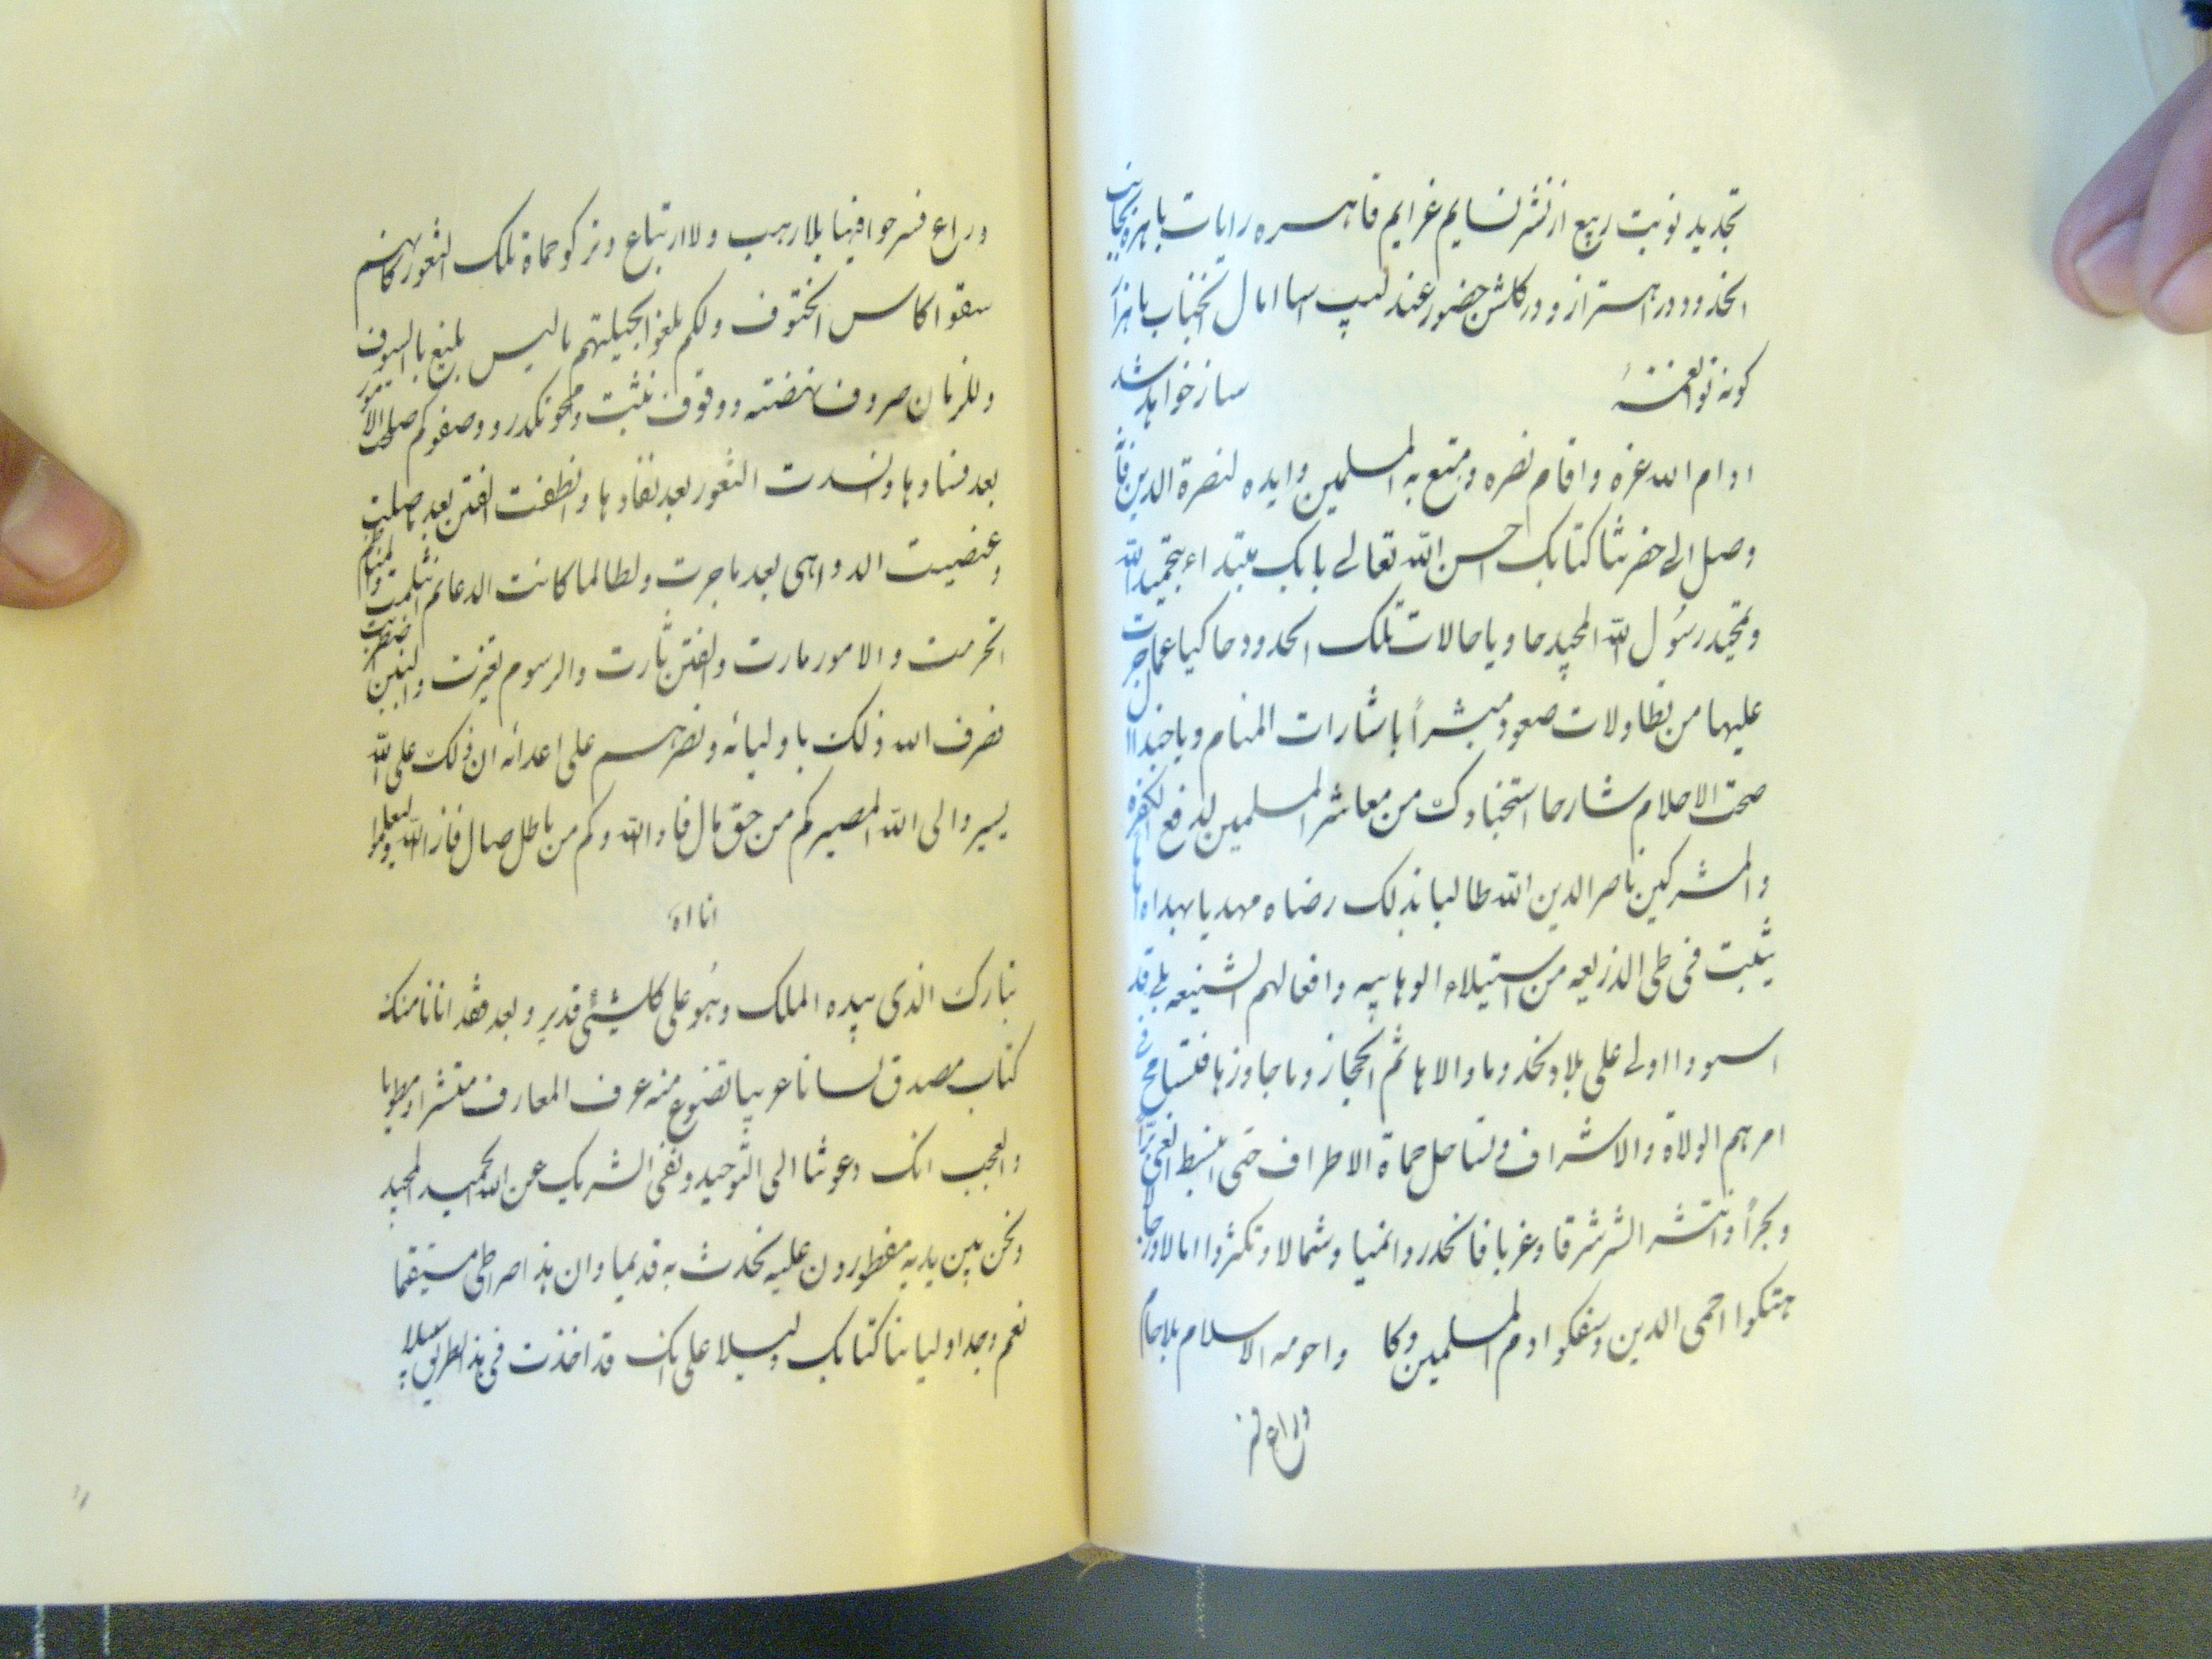 تجدید نوبت ربیع از نشر نسایم غرایم قاهره رایات باهره بجانب
الحذود در اهتزاز و در کلشن حضور عندلیب اسا امال آنجناب با هزار
کونه نوا نغمه ساز خواهد شد
ادام الله عزه واقام نصره ومتع به المسلمین وایده لنصرة الدین
وصل الی حضرتنا کتابک احسن الله تعالی بابک مبتداء بتحمید الله
وتمجید رسول الله المجید حاویا حالات تلک الحدود حاکیا عما جرت
علیها من تطاولات صعود مبشراً باشارات المنام ویا حبذا ان
صحت الاحلام شارحا استنجادک من معاشر المسلمین لدفع الکفره
والمشرکین ناصر الدین الله طالبا بذلک رضاه مهدیا بهداه
یثبت فی طی الذریعه من استیلاء الوهابیه وافعالهم الشنیعه بلی قد
استولوا اولی علی بلاد نجد وما والاها ثم الحجاز وما جاوزها فتسامح فی
امرهم الولاة والاشراف وتساهل حماة الاطراف حتی انبسط البغی براً
وبحراً وانتشر الشر شرقا وغربا فانحدروا یمینا وشمالا وتکثروا اموالا ورجالا
هتکوا احمی الدین وسفکوا دم المسلمین وکا واحومه الاسلام بلا حام
وراع فسر
وراع فسرحوا فیها بلا رهب ولا ارتیاع وترکوا حماة تلک الثغور کانهم
سقوا کاس الحتوف ولکم بلغوا بحیلتهم ما لیس یبلغ بالسیوف
وللزمان صروف نهضته ووقوف یثبت ومحو تکدر وصفو کم صلحت الامور
بعد فسادها وانسدت الثغور بعد نفادها وانطفت الفتن بعد ما صلت
وغضیت الدواهی بعد ما جرت ولطالما کانت الدعائم انثلمت والمنام
انخرمت والامور مارت والفتن ثارت والرسوم تغیرت والبنین اضطربت
فصرف الله ذلک باولیائه ونصرهم علی اعدائه ان ذلک علی الله
یسیر والی الله المصیر کم من حق مال فاد الله وکم من باطل صال فاز الله
انا اه
تبارک الذی بیده الملک وهو علی کلشیئی قدیر وبعد فقد اتانا منک
کتاب مصدق لسانا عربیا تضوع منه عرف المعارف منتشرا ومطویا
والعجب انک دعوتنا الی التوحید ونفی الشریک عن الله الحمید المجید
ونحن بین یدیه مفطورون علیه نحدث به قدیما وان هذا صراطی مستقیما
نعم وجد اولیائنا کتابک دلیلا علی انک قد اخذت فی هذا الطریق سبیلا